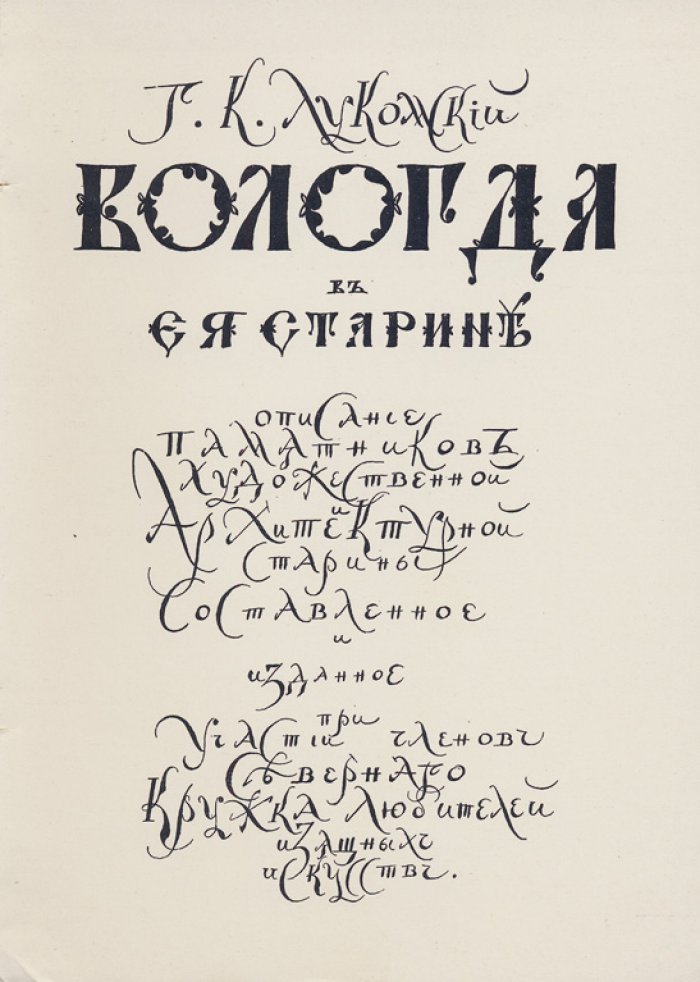 Г. К. Лукомскiй
ВОЛОГДА
въ
ЕЯ СТАРИНѢ
описанiе
памятниковъ
художественной
и
архитектурной
старины
составленное
и
изданное
при
участiи членовъ
Сѣвернаго
Кружка Любителей
изящныхъ
искусствъ.